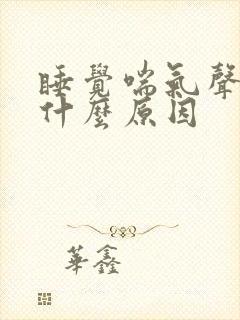 睡覺喘氣聲
什麼原因
華鑫